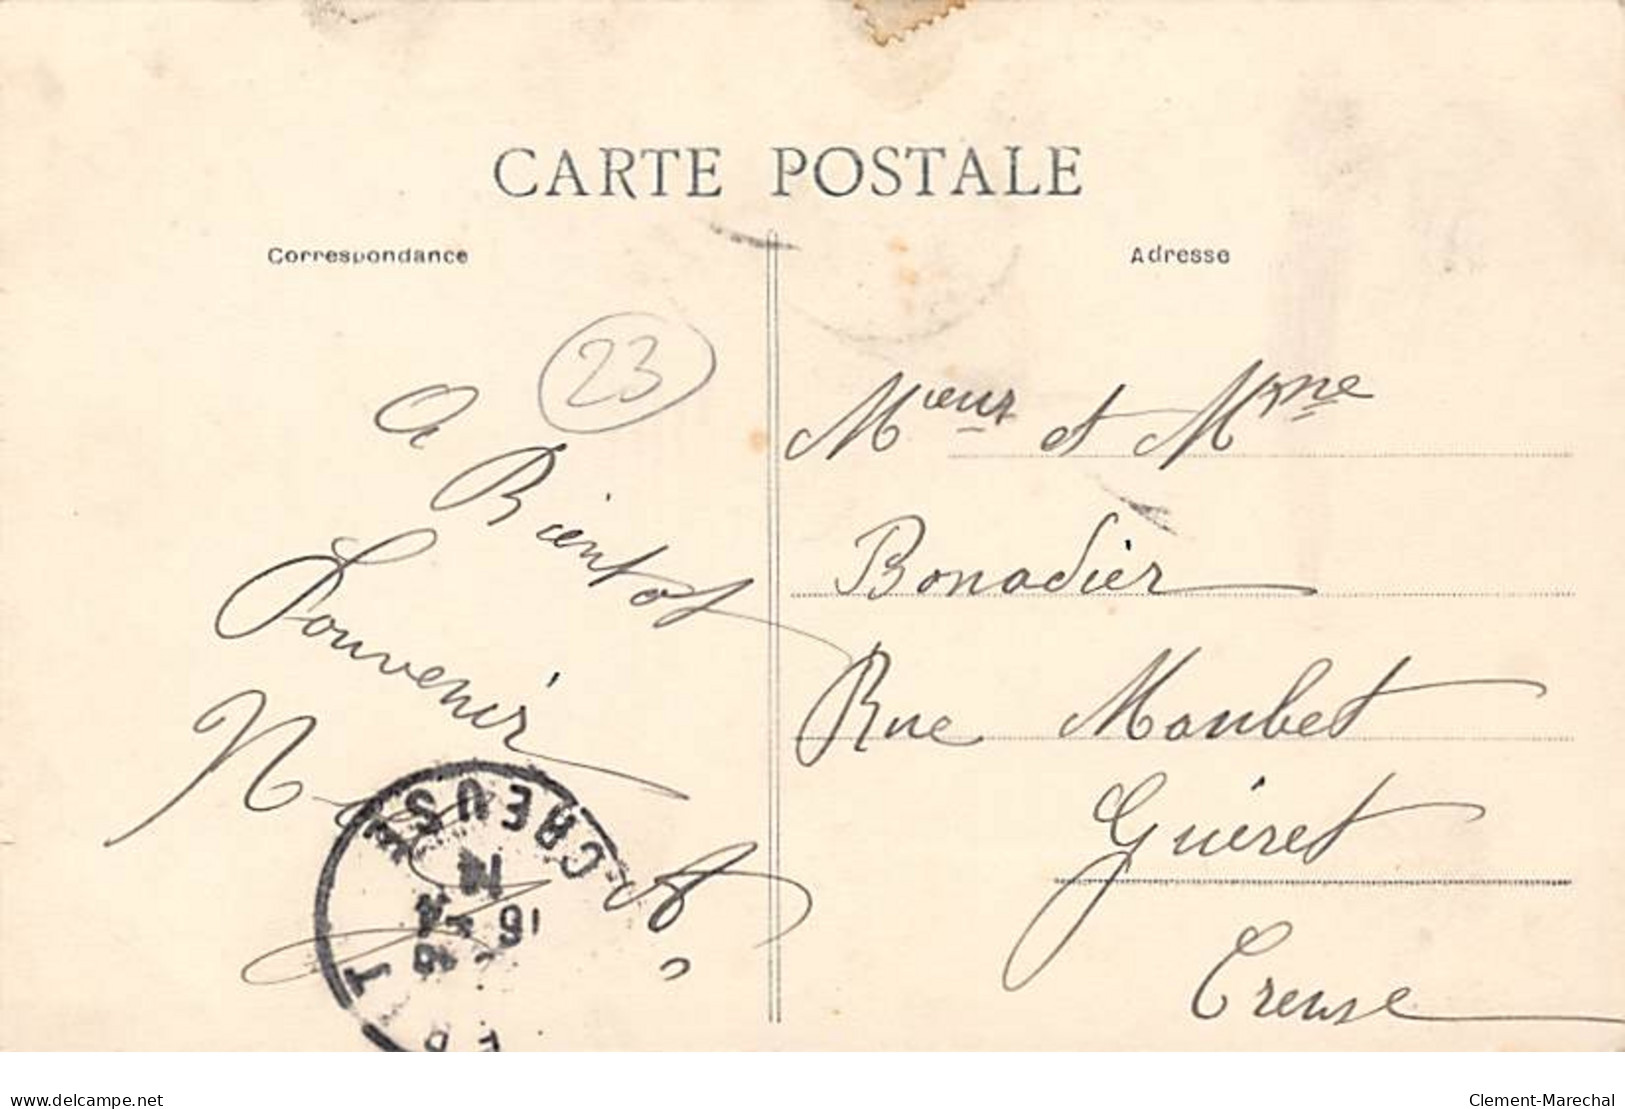 CARTE POSTALE
Correspondance
Adresse
23
A
Bientot
Souvenir
Mœur et Mme
Bonadier
Rue Moubet
Guéret
Creuse
CREUSE
delcampe.net
Clement-Marechal